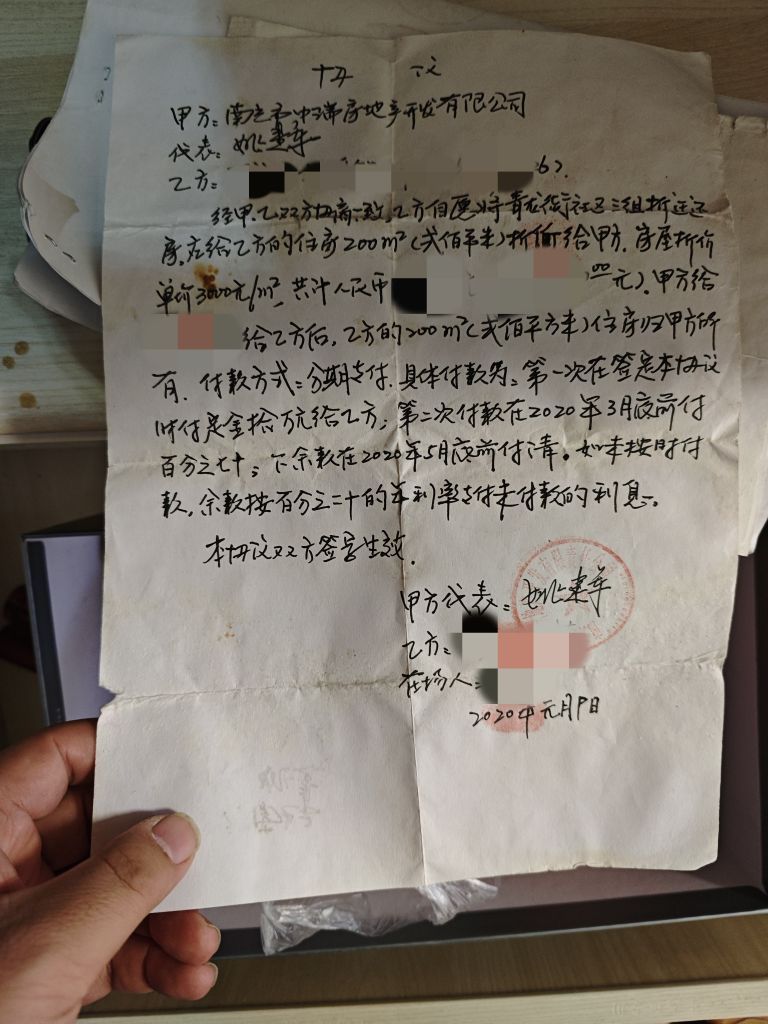 协 议
甲方：南充市中瑞房地产开发有限公司
代表：姚建军
乙方：
经甲、乙双方协商一致，乙方自愿将青龙街社区三组拆迁还
房，应给乙方的住房200m²（贰佰平米）折价给甲方，房屋折价
单价3000元/m²，共计人民币 00元）。甲方给
给乙方后，乙方的200m²（贰佰平方米）住房归甲方所
有，付款方式：分期支付，具体付款为：第一次在签定本协议
时付定金拾万元给乙方；第二次付款在2020年3月底前付
百分之七十；下余款在2020年5月底前付清。如未按时付
款，余款按百分之二十的年利率支付未付款的利息。
本协议双方签字生效。
甲方代表：姚建军
乙方：
在场人：
2020年元月9日